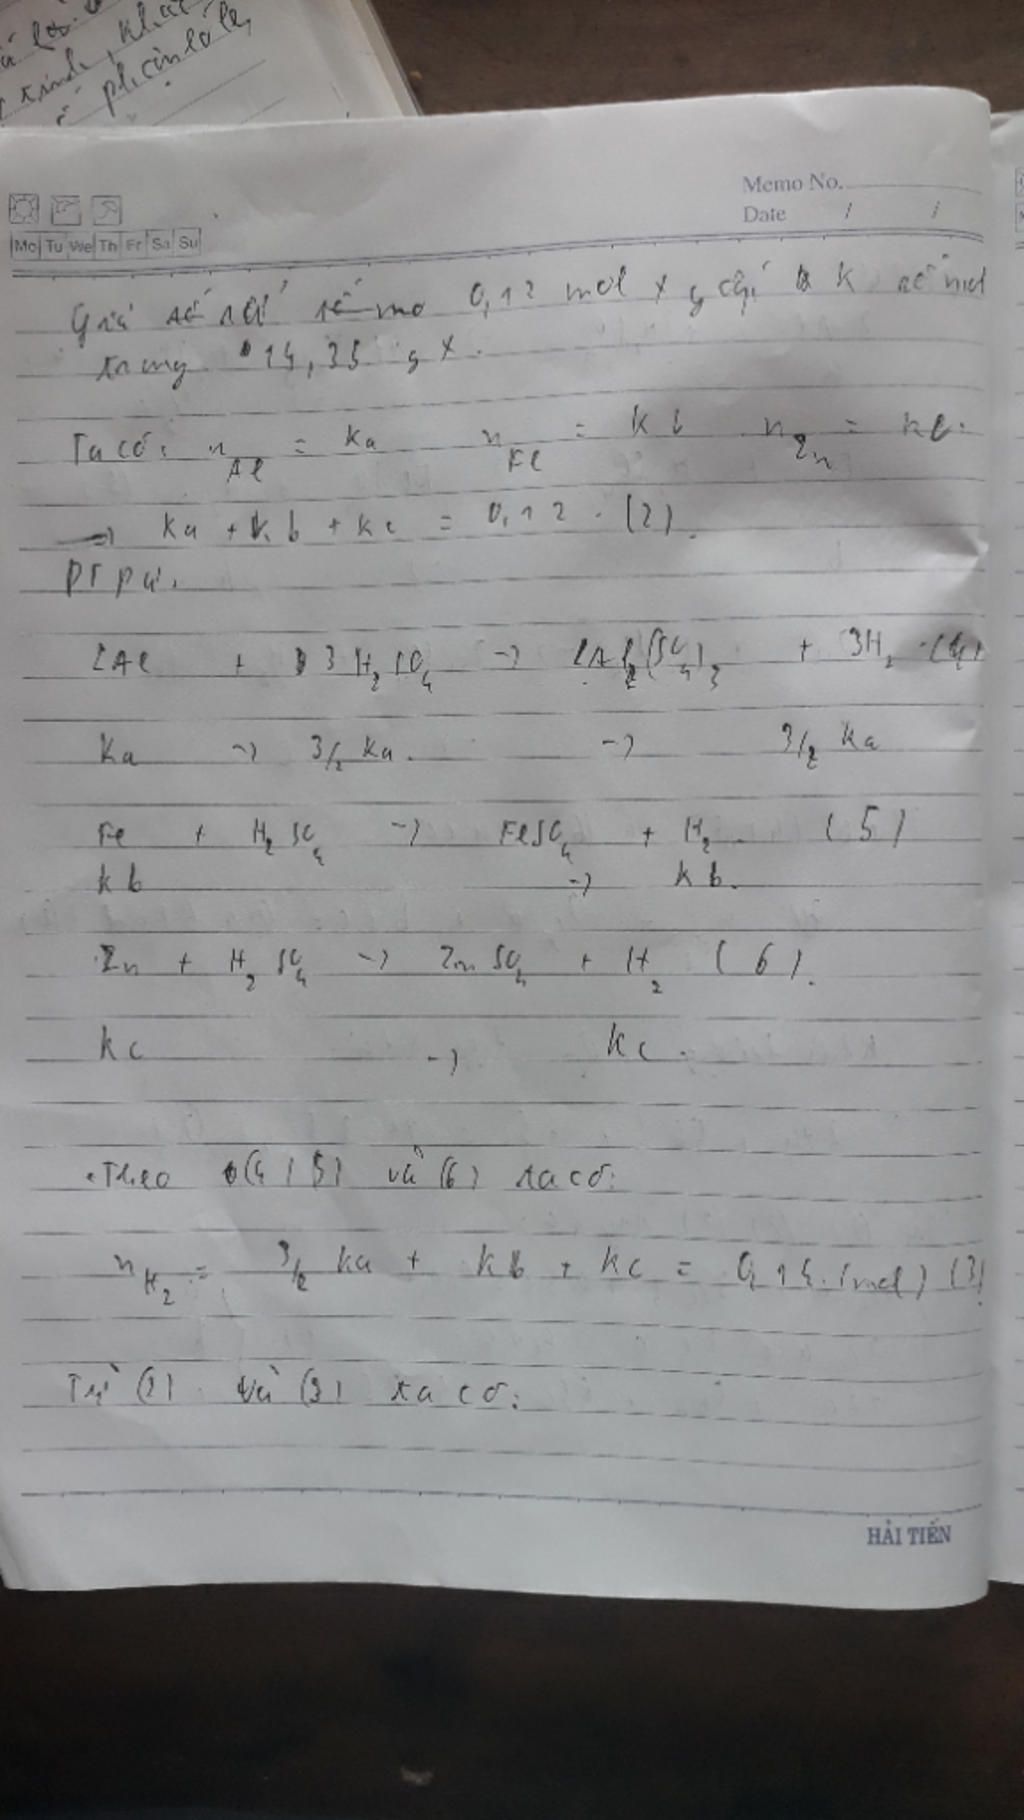 trình, khái
Memo No.
Date / /
Mo Tu We Th Fr Sa Su
Giả sử số mo 0,12 mol x gấp k số mol
trong 14,35 g x.
Ta có: n Al = ka n Fe = kb n Zn = kc.
=> ka + kb + kc = 0,12. (2).
PT pư.
2Al + 3H2SO4 -> Al2(SO4)3 + 3H2. (4)
Ka -> 3/2 ka. -> 3/2 ka
Fe + H2SO4 -> FeSO4 + H2. (5)
kb -> kb.
Zn + H2SO4 -> ZnSO4 + H2 (6).
kc -> kc.
Theo (4) 5) và (6) ta có:
nH2 = 3/2 ka + kb + kc = 0,14. (mol) (3)
Từ (2) và (3) ta có:
HẢI TIẾN